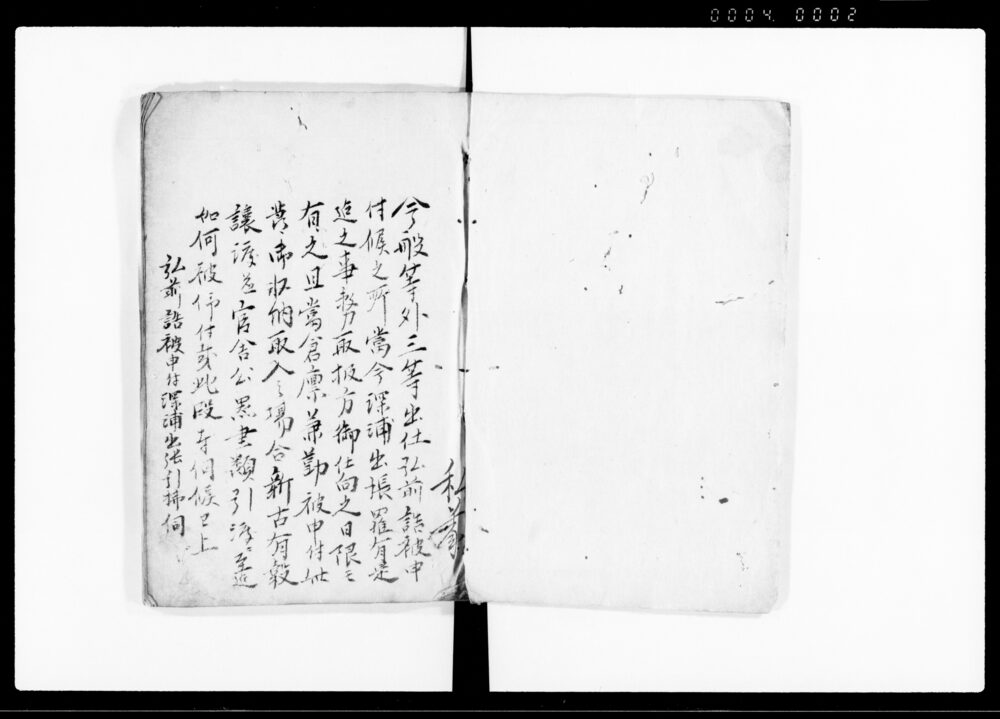 0004 0002
私
今般等外三等出仕弘前詰被申
付候之所當今深浦出張罷有是
迄之事務取扱方御仕向之日限ニ
有之且當倉廩兼勤被申付
御収納取入之場合新古有穀
讓渡並官舎公黒書類引渡等
如何被仰付哉此段奉伺候已上
弘前詰被申付深浦出張引拂伺